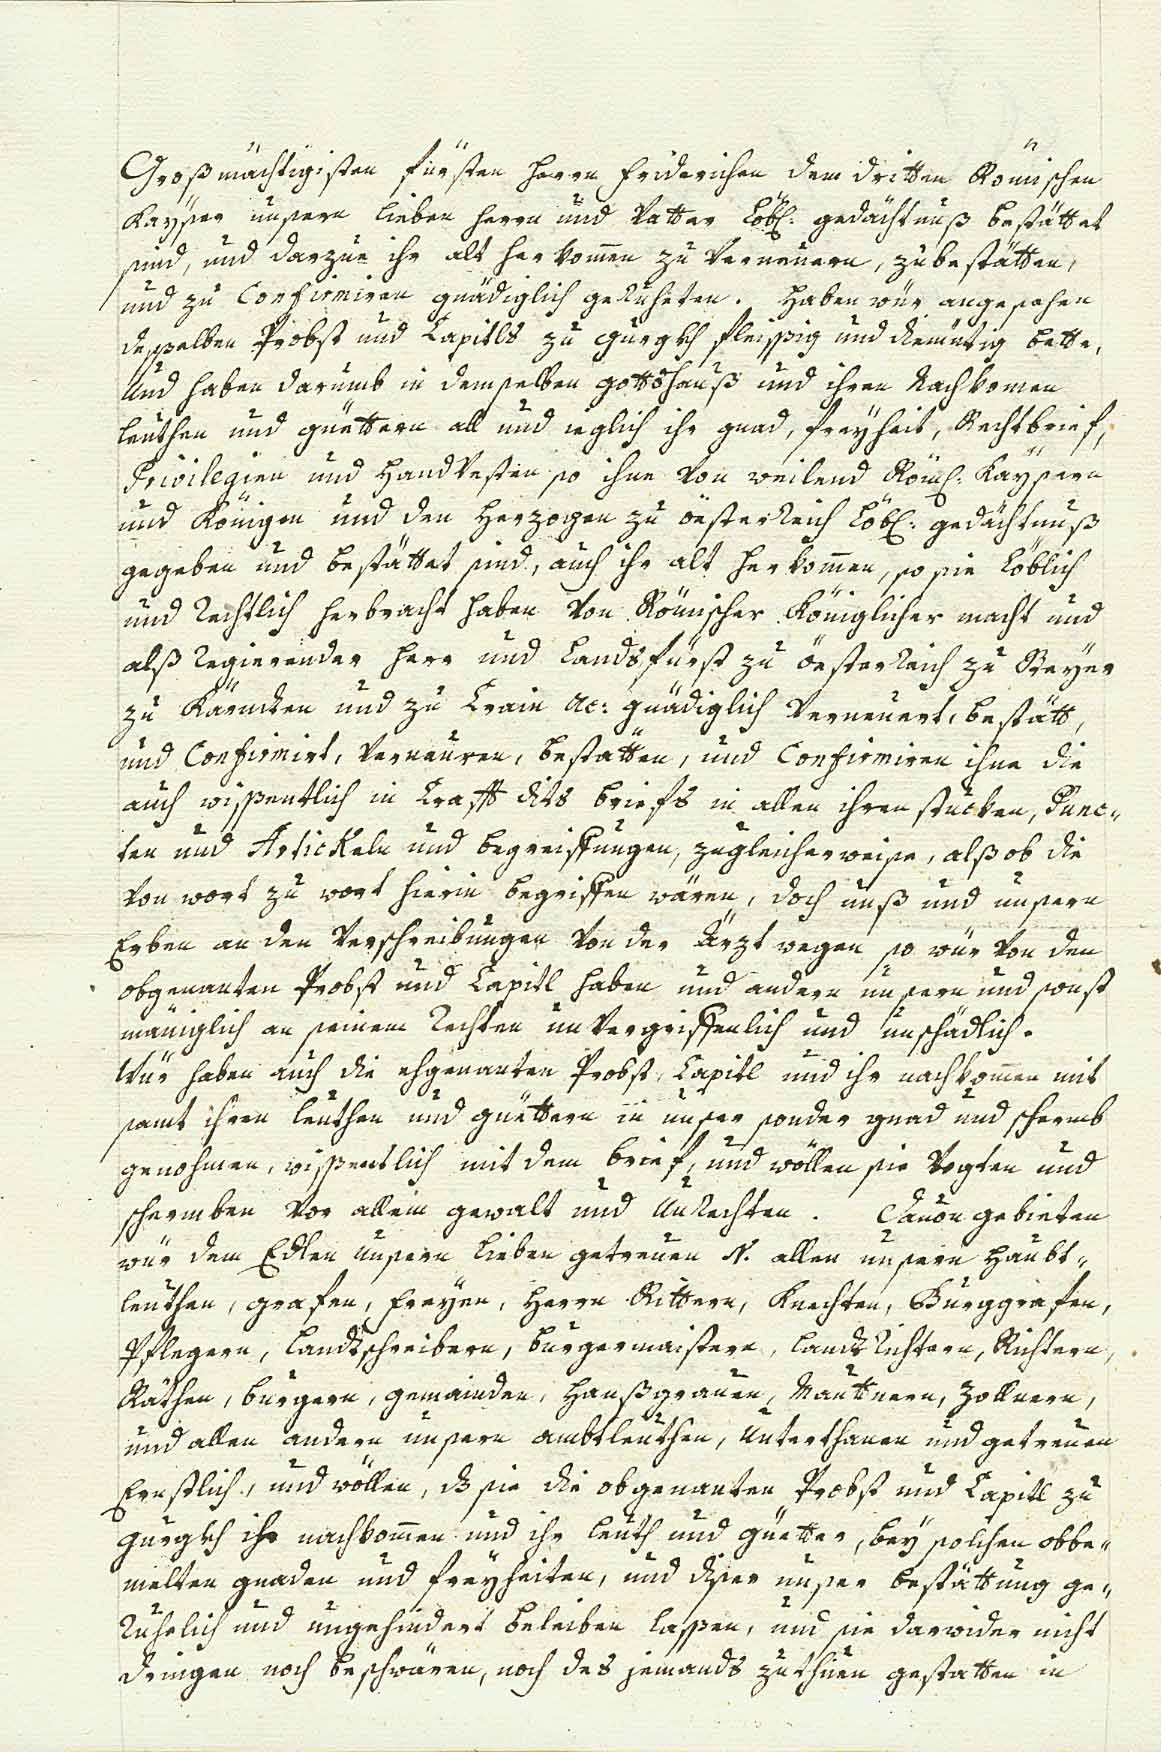 Großmächtigisten fürsten herrn friderichen dem dritten Römischen
Kaÿser unsern lieben herrn und Vatter Löbl: gedächtnuß bestättet
sind, und darzue ihr alt herkom̄en zu Verneuern, zubestätten,
und zu Confirmiren gnädiglich geruheten. Haben wür angesehen
desselben Probst und Capitls zu gurgkh fleissig und diemütig bette,
Und haben darumb in demselben gottshauß und ihren Nachkomen
leuthen und güettern all und ieglich ihr gnad, freÿheit, Rechtbrief,
Privilegien und Handvesten so ihne Von weilend Röml: Kaÿsern
und Königen und den Herzogen zu österreich Löbl: gedächtnuß
gegeben und bestättet sind, auch ihr alt herkom̄en, so sie löblich
und rechtlich herbracht haben Von Römischer Königlicher macht und
alß regierender herr und Landsfürst zu österreich zu Steÿer
zu Kärndten und zu Crain ac: gnädiglich Verneuert, bestätt,
und Confirmirt, Verneuren, bestätten, und Confirmiren ihne die
auch wissentlich in Crafft dits briefs in allen ihren stucken, Punc-
ten und Artickeln und begreiffungen, zugleicherweise, alß ob die
Von wort zu wort hierin begriffen wären, doch unß und unsern
Erben an den Verschreibungen Von der Ärzt wegen so wür Von den
obgenanten Probst und Capitl haben und andern unsern und sonst
mäniglich an seinem rechten unvergriffenlich und unschädlich.
Wür haben auch die ehgenanten Probst, Capitl und ihr nachkom̄en mit
samt ihren leuthen und güettern in unser sonder gnad und schermb
genohmen, wissentlich mit dem brief, und wöllen sie Vogten und
schermben Vor allem gewalt und Unrechten. Davon gebieten
wür dem Edlen unsern lieben getreuen N. allen unsern Haubt-
leuthen, grafen, freÿen, Herrn Rittern, Knechten, Burggrafen,
Pflegern, Landtschreibern, burgermaistern, Landtrichtern, Richtern,
Räthen, burgern, gemainden, Haußgrauen, Mauttnern, Zollnern,
und allen andern unsern ambtleuthen, Unterthanen und getreuen
Ernstlich, und wöllen, dß sie die obgenanten Probst und Capitl zu
gurgkh ihr nachkom̄en und ihr leuth und güetter, beÿ solchen obbe-
melten gnaden und freÿheiten, und diser unser bestättung ge-
ruhelich und ungehindert beleiben lassen, und sie darwider nicht
dringen noch beschwären, noch des jemands zuthuen gestatten in